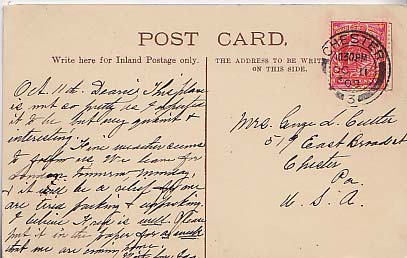 POST CARD.
Write here for Inland Postage only.
THE ADDRESS TO BE WRITTEN
ON THIS SIDE.
CHESTER
10.30PM
OC 11
3
Oct. 11th. Dearie This place
is not so pretty as I expected
it to be but very quaint &
interesting.
Fine weather seems
to follow us. We leave for
London Monday,
& it will be a relief for we
are tired packing & unpacking.
I believe is well. Please
put it in the paper for a week
that we are coming home.
Mrs. George L.
519 East Broad St
Chester
Pa
U. S. A.